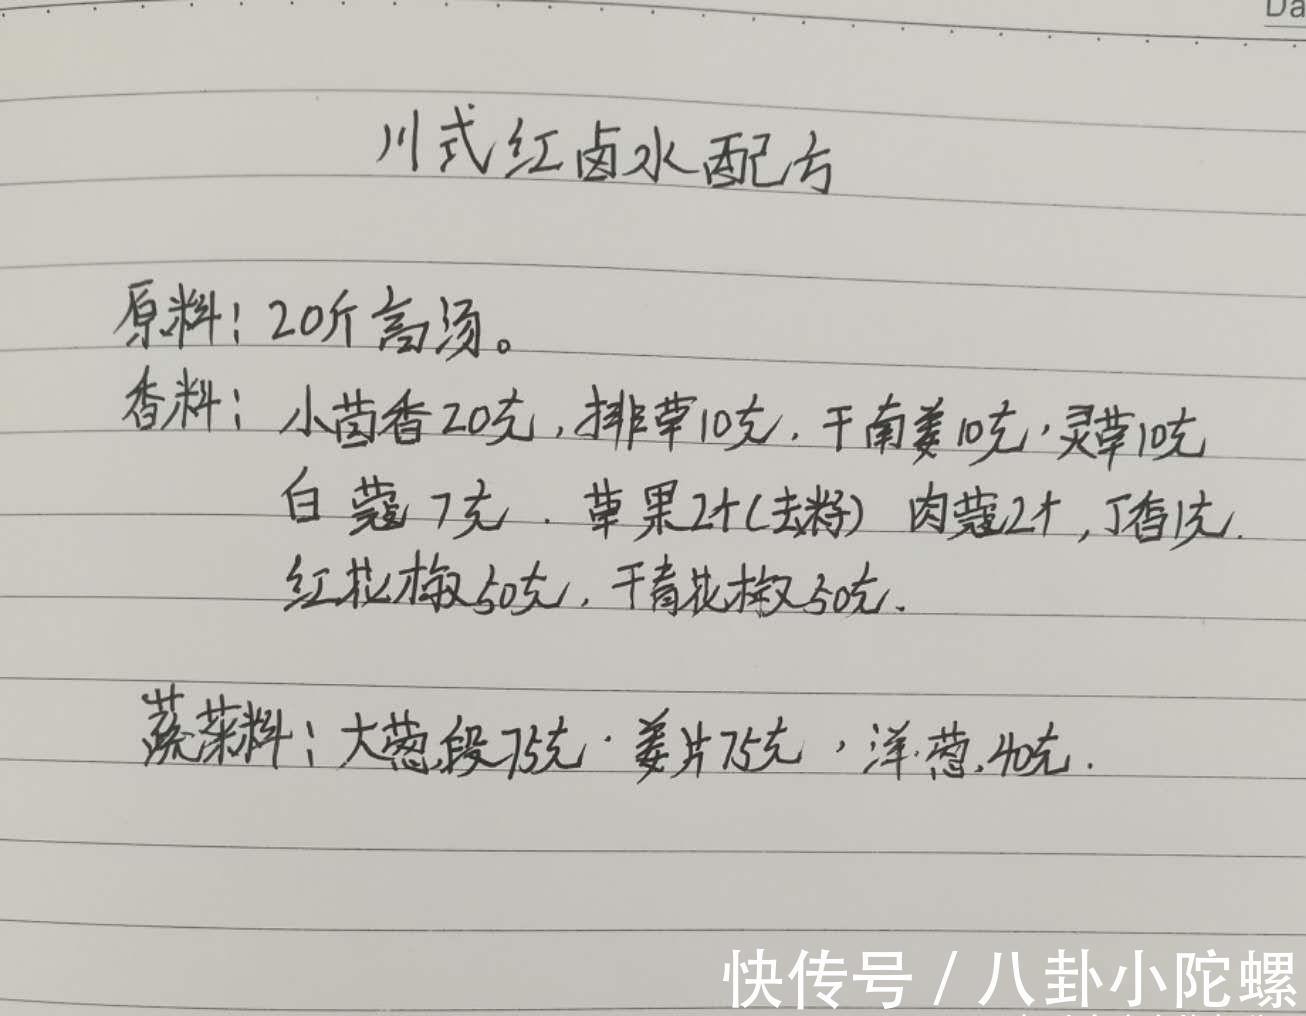 Da
川式红卤水配方
原料：20斤高汤。
香料：小茴香20克，排草10克，干南姜10克，灵草10克
白蔻7克．草果2个（去籽）肉蔻2个，丁香1克．
红花椒50克，干青花椒50克．
蔬菜料：大葱段75克．姜片75克，洋葱40克．
快传号／八卦小陀螺